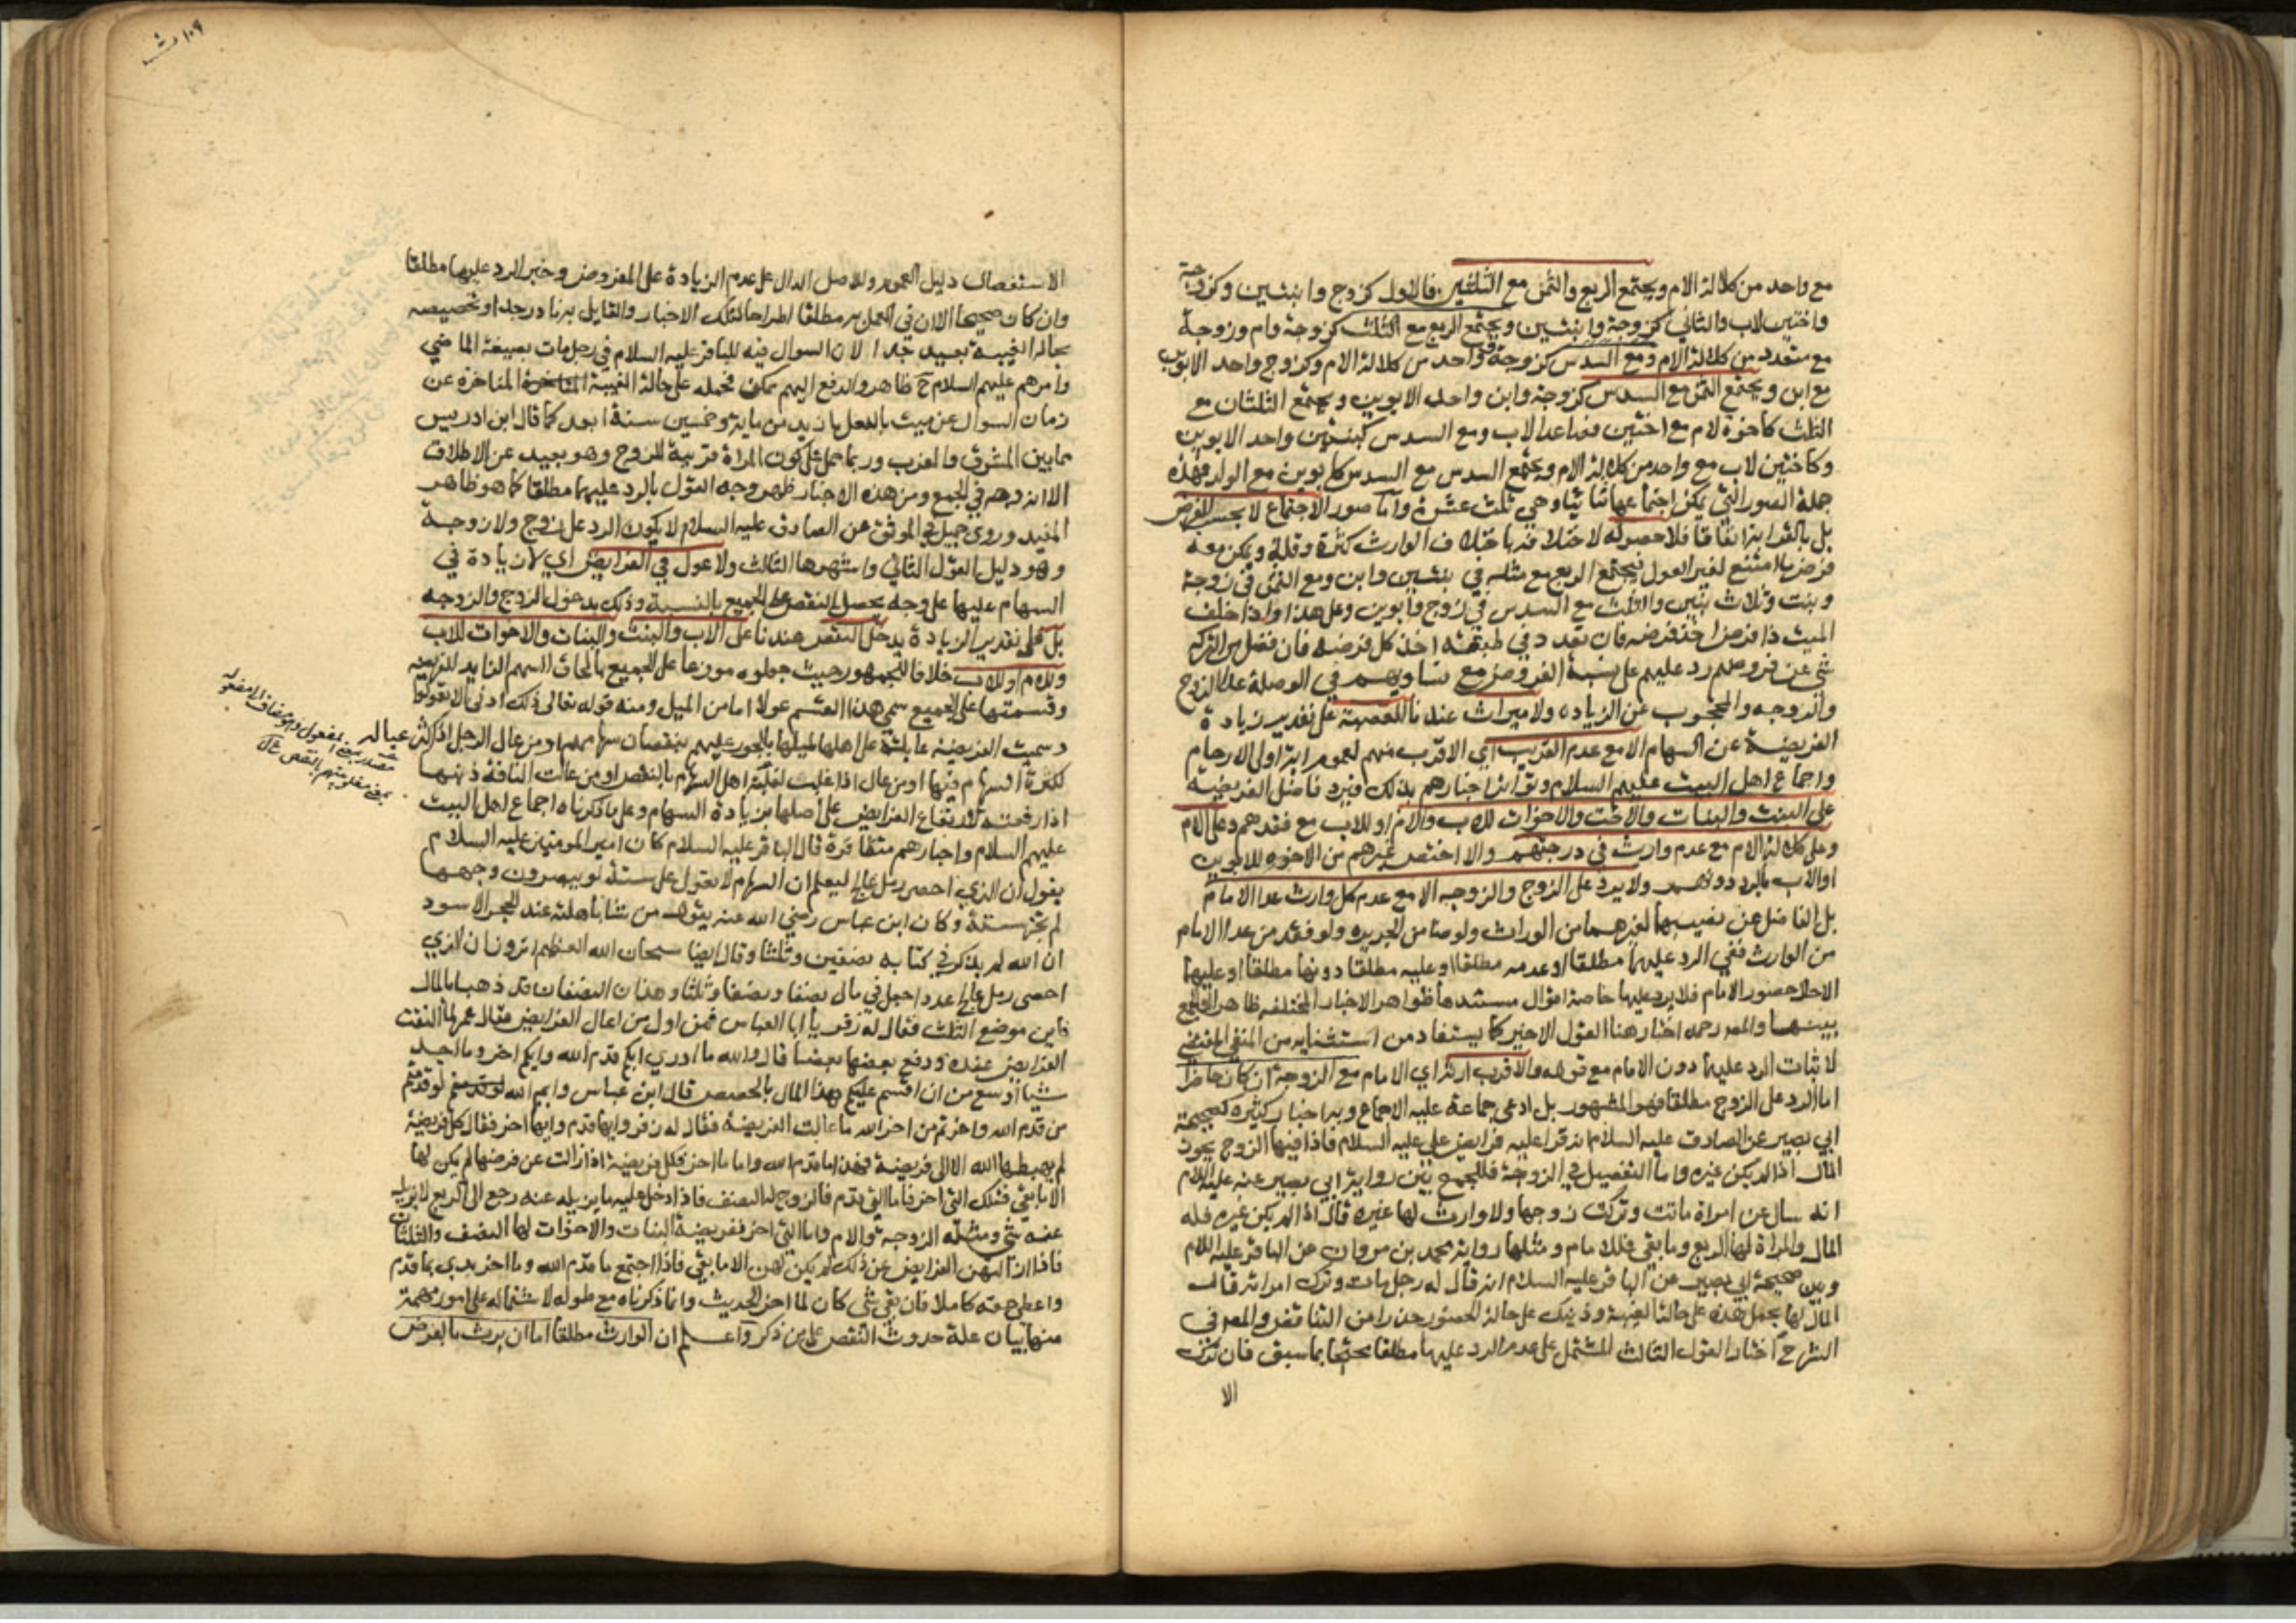 مع واحد من كلالة الام ويجتمع الربع والثمن مع الثلثين فالاول كزوج وابنتين وكزوجة
واختين لاب والثاني كزوجة وابنتين ويجتمع الربع مع الثلث كزوجة وام وزوجة
مع متعدد من كلالة الام ومع السدس كزوجة وواحد من كلالة الام وكزوج واحد الابوين
مع ابن ويجتمع الثمن مع السدس كزوجة وابن واحد الابوين ويجتمع الثلثان مع
الثلث كاخوة لام مع اختين فصاعدا لاب ومع السدس كبنتين واحد الابوين
وكاختين لاب مع واحد من كلالة الام ويجتمع السدس مع السدس كابوين مع الولد فهذه
جملة الصور التي يمكن اجتماعها ثنائيا وهي ثلث عشرة واما صور الاجتماع لا بحسب الفرض
بل بالقرابة اتفاقا فلا حصر له لاختلافه باختلاف الوارث كثرة وقلة ويمكن معه
فرض ما امتنع لغير العول فيجتمع الربع مع مثله في بنتين وابن ومع الثمن في زوجة
وبنت وثلاث بنين والثلث مع السدس في زوج وابوين وعلى هذا واذا خلف
الميت ذا فرض اخذ فرضه فان تعدد في طبقته اخذ كل فرضه فان فضل من التركة
شي عن فروضهم رد عليهم على نسبة الفروض مع تساويهم في الوصلة عدا الزوج
والزوجه والمحجوب عن الزياده ولا ميراث عندنا للعصبة على تقدير زيادة
الفريضة عن السهام الا مع عدم القريب اي الاقرب منهم لعموم اية اولى الارحام
واجماع اهل البيت عليهم السلام وتواتر اخبارهم بذلك فيرد فاضل الفريضة
على البنت والبنات والاخت والاخوات للاب والام او للاب مع فقدهم وعلى الام
وعلى كلالة الام مع عدم وارث في درجتهم والا اختص غيرهم من الاخوه للابوين
او الاب بالرد دونهم ولا يرد على الزوج والزوجه الا مع عدم كل وارث عدا الامام
بل الفاضل عن نصيبهما لغيرهما من الوراث ولو ضامن الجريره ولو فقد من عدا الامام
من الوارث ففي الرد عليهما مطلقا او عدمه مطلقا او عليه مطلقا دونها مطلقا او عليهما
الا حال حضور الامام فلا يرد عليها خاصة اقوال مستندها ظواهر الاخبار المختلفه ظاهرا والجمع
بينهما والمص رحمه اختار هنا القول الاخير كما يستفاد من استثنائه من المنفي المقتضي
لاثبات الرد عليهما دون الامام مع قوله والاقرب ارثه اي الامام مع الزوجة ان كان حاضرا
اما الرد على الزوج مطلقا فهو المشهور بل ادعى جماعة عليه الاجماع وبه اخبار كثيره كصحيحة
ابي بصير عن الصادق عليه السلام انه قرا عليه فرايض علي عليه السلام فاذا فيها الزوج يحوز
المال اذا لم يكن غيره واما التفصيل في الزوجة فللجمع بين رواية ابي بصير عنه عليه السلام
انه سال عن امراة ماتت وتركت زوجها ولا وارث لها غيره قال اذا لم يكن غيره فله
المال والمراة لها الربع وما بقي فللامام ومثلها رواية محمد بن مروان عن الباقر عليه السلام
وبين صحيحة ابي بصير عن الباقر عليه السلام انه قال له رجل مات وترك امراته قال
المال لها بحمل هذه على حالة الغيبة وذينك على حالة الحضور حذرا من التناقض والمص في
الشرح اختار القول الثالث المشتمل على عدم الرد عليها مطلقا محتجا بما سبق فان ترك
الا
١٠٩
الاستفصال دليل العموم وللاصل الدال على عدم الزيادة على المفروض وخبر الرد عليها مطلقا
وان كان صحيحا الا ان في العمل به مطلقا اطراحا لتلك الاخبار والقايل به نادر جدا وتخصيصه
بحالة الغيبة بعيد جدا لان السوال فيه للباقر عليه السلام في رجل مات بصيغة الماضي
وامرهم عليهم السلام ح ظاهر والدفع اليهم ممكن فحمله على حالة الغيبة المتاخرة عن
زمان السوال عن ميت بالفعل بازيد من ماية وخمسين سنة ابعد كما قال ابن ادريس
مما بين المشرق والمغرب وربما حمل على كون المراة قريبة للزوج وهو بعيد عن الاطلاق
الا انه وجه في الجمع ومن هذه الاخبار ظهر وجه القول بالرد عليهما مطلقا كما هو ظاهر
المفيد وروى جميل في الموثق عن الصادق عليه السلام لا يكون الرد على زوج ولا زوجة
وهو دليل القول الثاني واشهرها الثالث ولا عول في الفرايض اي لا زيادة في
السهام عليها على وجه يحصل النقص على الجميع بالنسبة وذلك بدخول الزوج والزوجه
بل على تقدير الزيادة يدخل النقص عندنا على الاب والبنت والبنات والاخوات للاب
وللام او للاب خلافا للجمهور حيث جعلوه موزعا على الجميع بالحاق السهم الزايد للفريضه
وقسمتها على الجميع سمي هذا القسم عولا اما من الميل ومنه قوله تعالى ذلك ادنى الا تعولوا
وسميت الفريضة عايلة على اهلها لميلها بالجور عليهم بنقصان سهامهم او من عال الرجل اذا كثر عياله
لكثرة السهام فيها او من عال اذا غلب لغلبة اهل السهام بالنقص او من عالت الناقة ذنبها
اذا رفعته لارتفاع الفرايض على اصلها بزيادة السهام وعلى ما ذكرناه اجماع اهل البيت
عليهم السلام واخبارهم متظافرة قال الباقر عليه السلام كان امير المومنين عليه السلام
يقول ان الذي احصى رمل عالج ليعلم ان السهام لا تعول على ستة لو يبصرون وجهها
لم تجز ستة وكان ابن عباس رضي الله عنه يقول من شاء باهلته عند الحجر الاسود
ان الله لم يذكر في كتابه نصفين وثلثا وقال ايضا سبحان الله العظيم اترون ان الذي
احصى رمل عالج عددا جعل في مال نصفا ونصفا وثلثا وهذان النصفان قد ذهبا بالمال
فاين موضع الثلث فقال له زفر يا ابا العباس فمن اول من اعال الفرايض فقال عمر لما التفت
الفرايض عنده ودفع بعضها بعضا قال والله ما ادري ايكم قدم الله وايكم اخر وما اجد
شيا اوسع من ان اقسم عليكم هذا المال بالحصص قال ابن عباس وايم الله لو قدمتم
من قدم الله واخرتم من اخر الله ما عالت الفريضة فقال له زفر وايها قدم وايها اخر فقال كل فريضة
لم يهبطها الله الا الى فريضة فهذا ما قدم الله واما ما اخر فكل فريضة اذا زالت عن فرضها لم يكن لها
الا ما بقي فتلك التي اخر فاما التي قدم فالزوج له النصف فاذا دخل عليه ما يزيله عنه رجع الى الربع لا يزيله
عنه شي ومثله الزوجة والام واما التي اخر ففريضة البنات والاخوات لها النصف والثلثان
فاذا ازالتهن الفرايض عن ذلك لم يكن لهن الا ما بقي فاذا اجتمع ما قدم الله وما اخر بدي بما قدم
واعطي حقه كاملا فان بقي شي كان لما اخر الحديث وانما ذكرناه مع طوله لاشتماله على امور مهمة
منها بيان علة حدوث النقص على من ذكر واعلم ان الوارث مطلقا اما ان يرث بالفرض